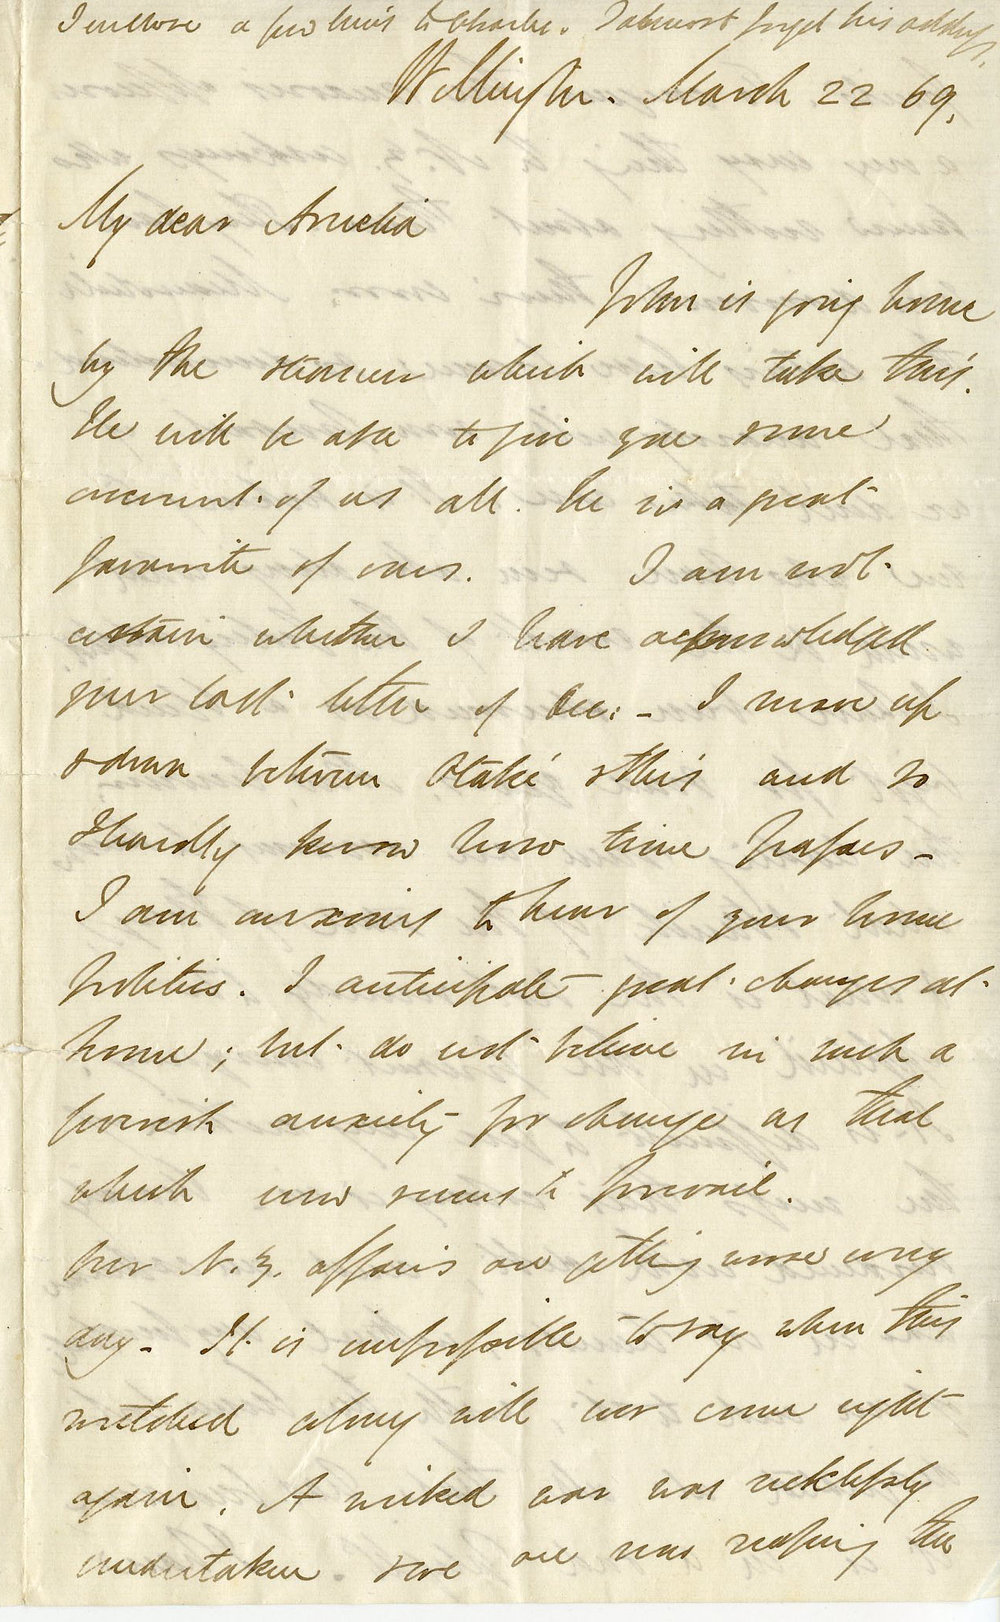 I enclose a few lines to Charlie. I almost forget his address.
Wellington. March 22 69.
My dear Amelia
John is going home
by the steamer which will take this.
He will be able to give you some
account of us all. He is a great
favourite of ours. I am not
certain whether I have acknowledged
your last letter of Dec: - I move up
& down between Otaki & this and so
I hardly know how time passes -
I am anxious to hear of your home
politics. I anticipate great changes at
home; but do not believe in such a
feverish anxiety for change as that
which now seems to prevail.
Our N.Z. affairs are getting worse every
day - It is impossible to say when this
wretched colony will ever come right
again. A wicked war was recklessly
undertaken & we are now reaping the